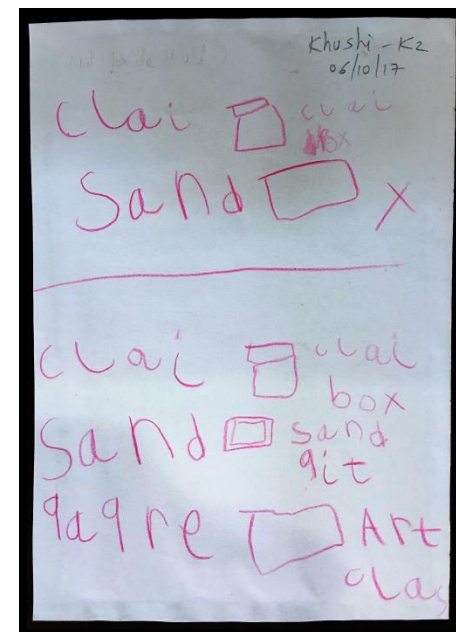 Khushi - K2
06/10/17
clai clai
Box
Sand X
clai clai
box
Sand sand
qit
qaqre Art
clas